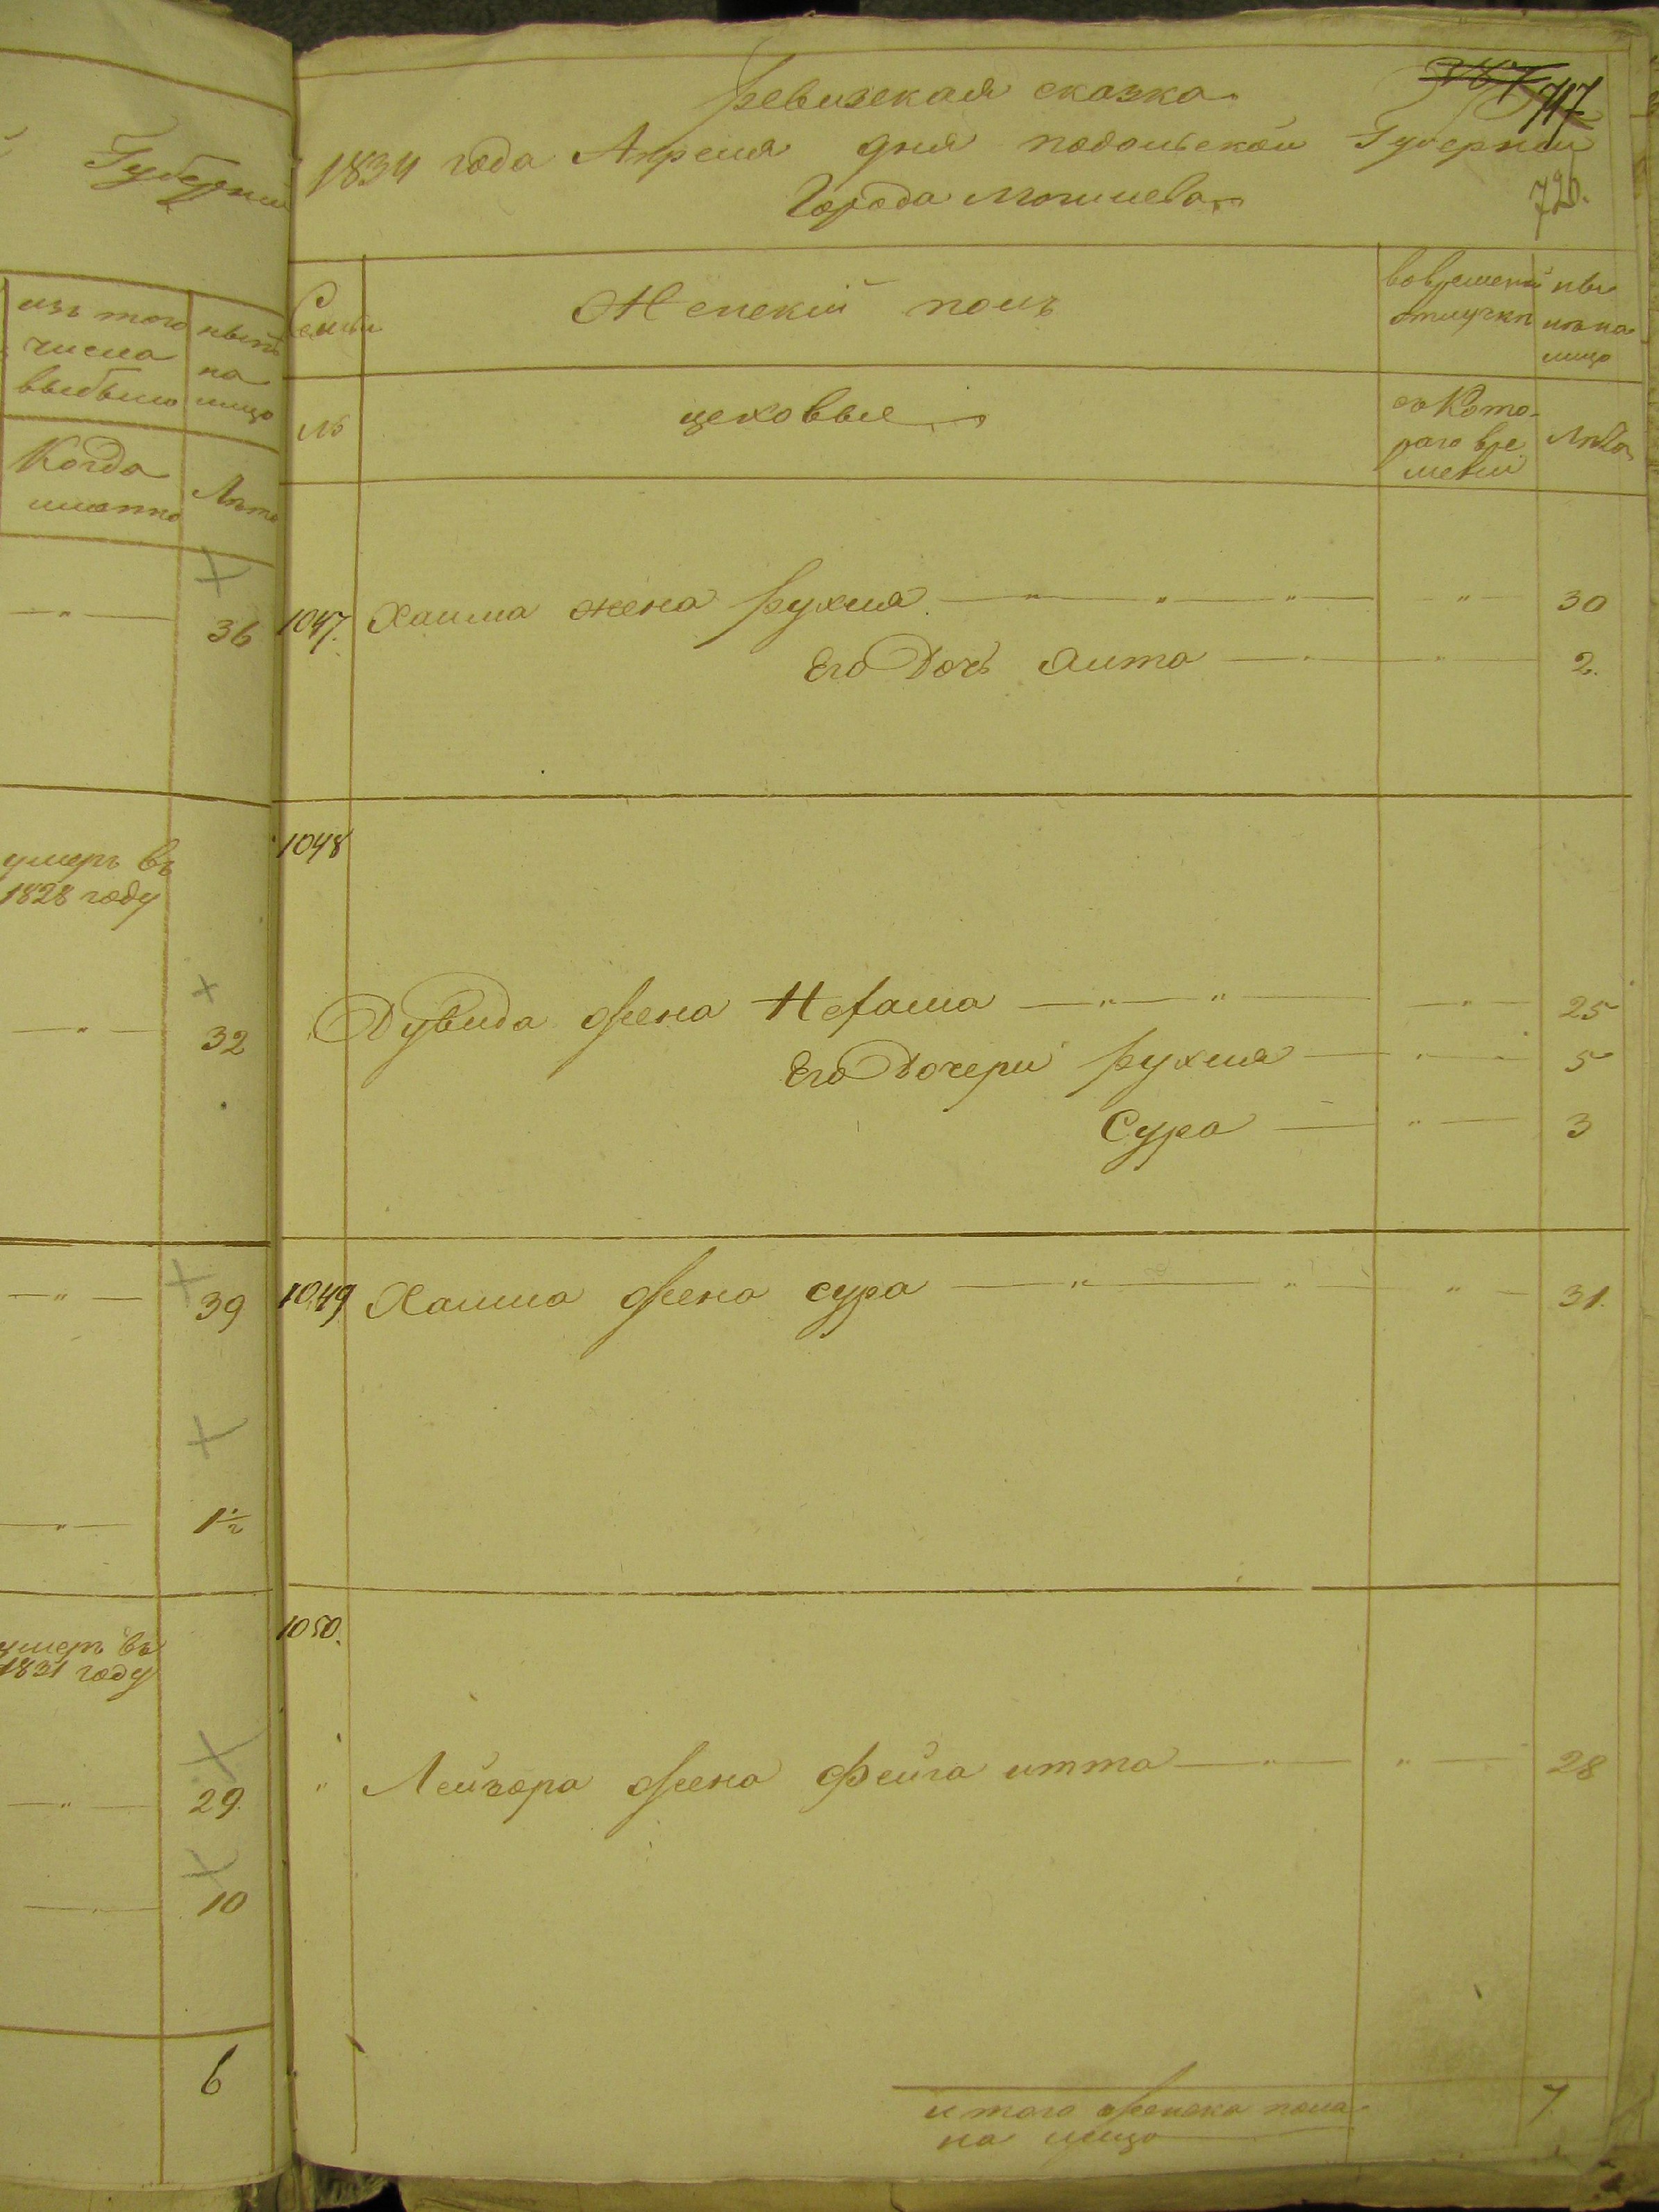 Губерній
изъ того
числа
выбыло
нынѣ
на
лицо
Когда
именно
Лѣта
36
умеръ въ
1828 году
32
39
1 1/2
умеръ въ
1831 году
29.
10
6
717
720.
Ревизская сказка
1834 года Апреля дня подольской Губерніи
Города Могилева
Семьи
Женскій полъ
вовремени
отлучки
ны
нѣ на
лицо
№
цеховые
съ Кото-
раго вре
мени
Лѣта
1047. Хаима жена Рухля — " — " — " — " — 30
Его Дочь Аита — " — " — 2.
1048
Дувида жена Нехама — " — " — " — 25
Его Дочери Рухля — " — 5
Сура — " — 3
1049 Хаима жена сура — " — " — " — 31.
1050.
" Лейзора жена Фейга итта — " — " — 28
итого женска пола
на лицо
7